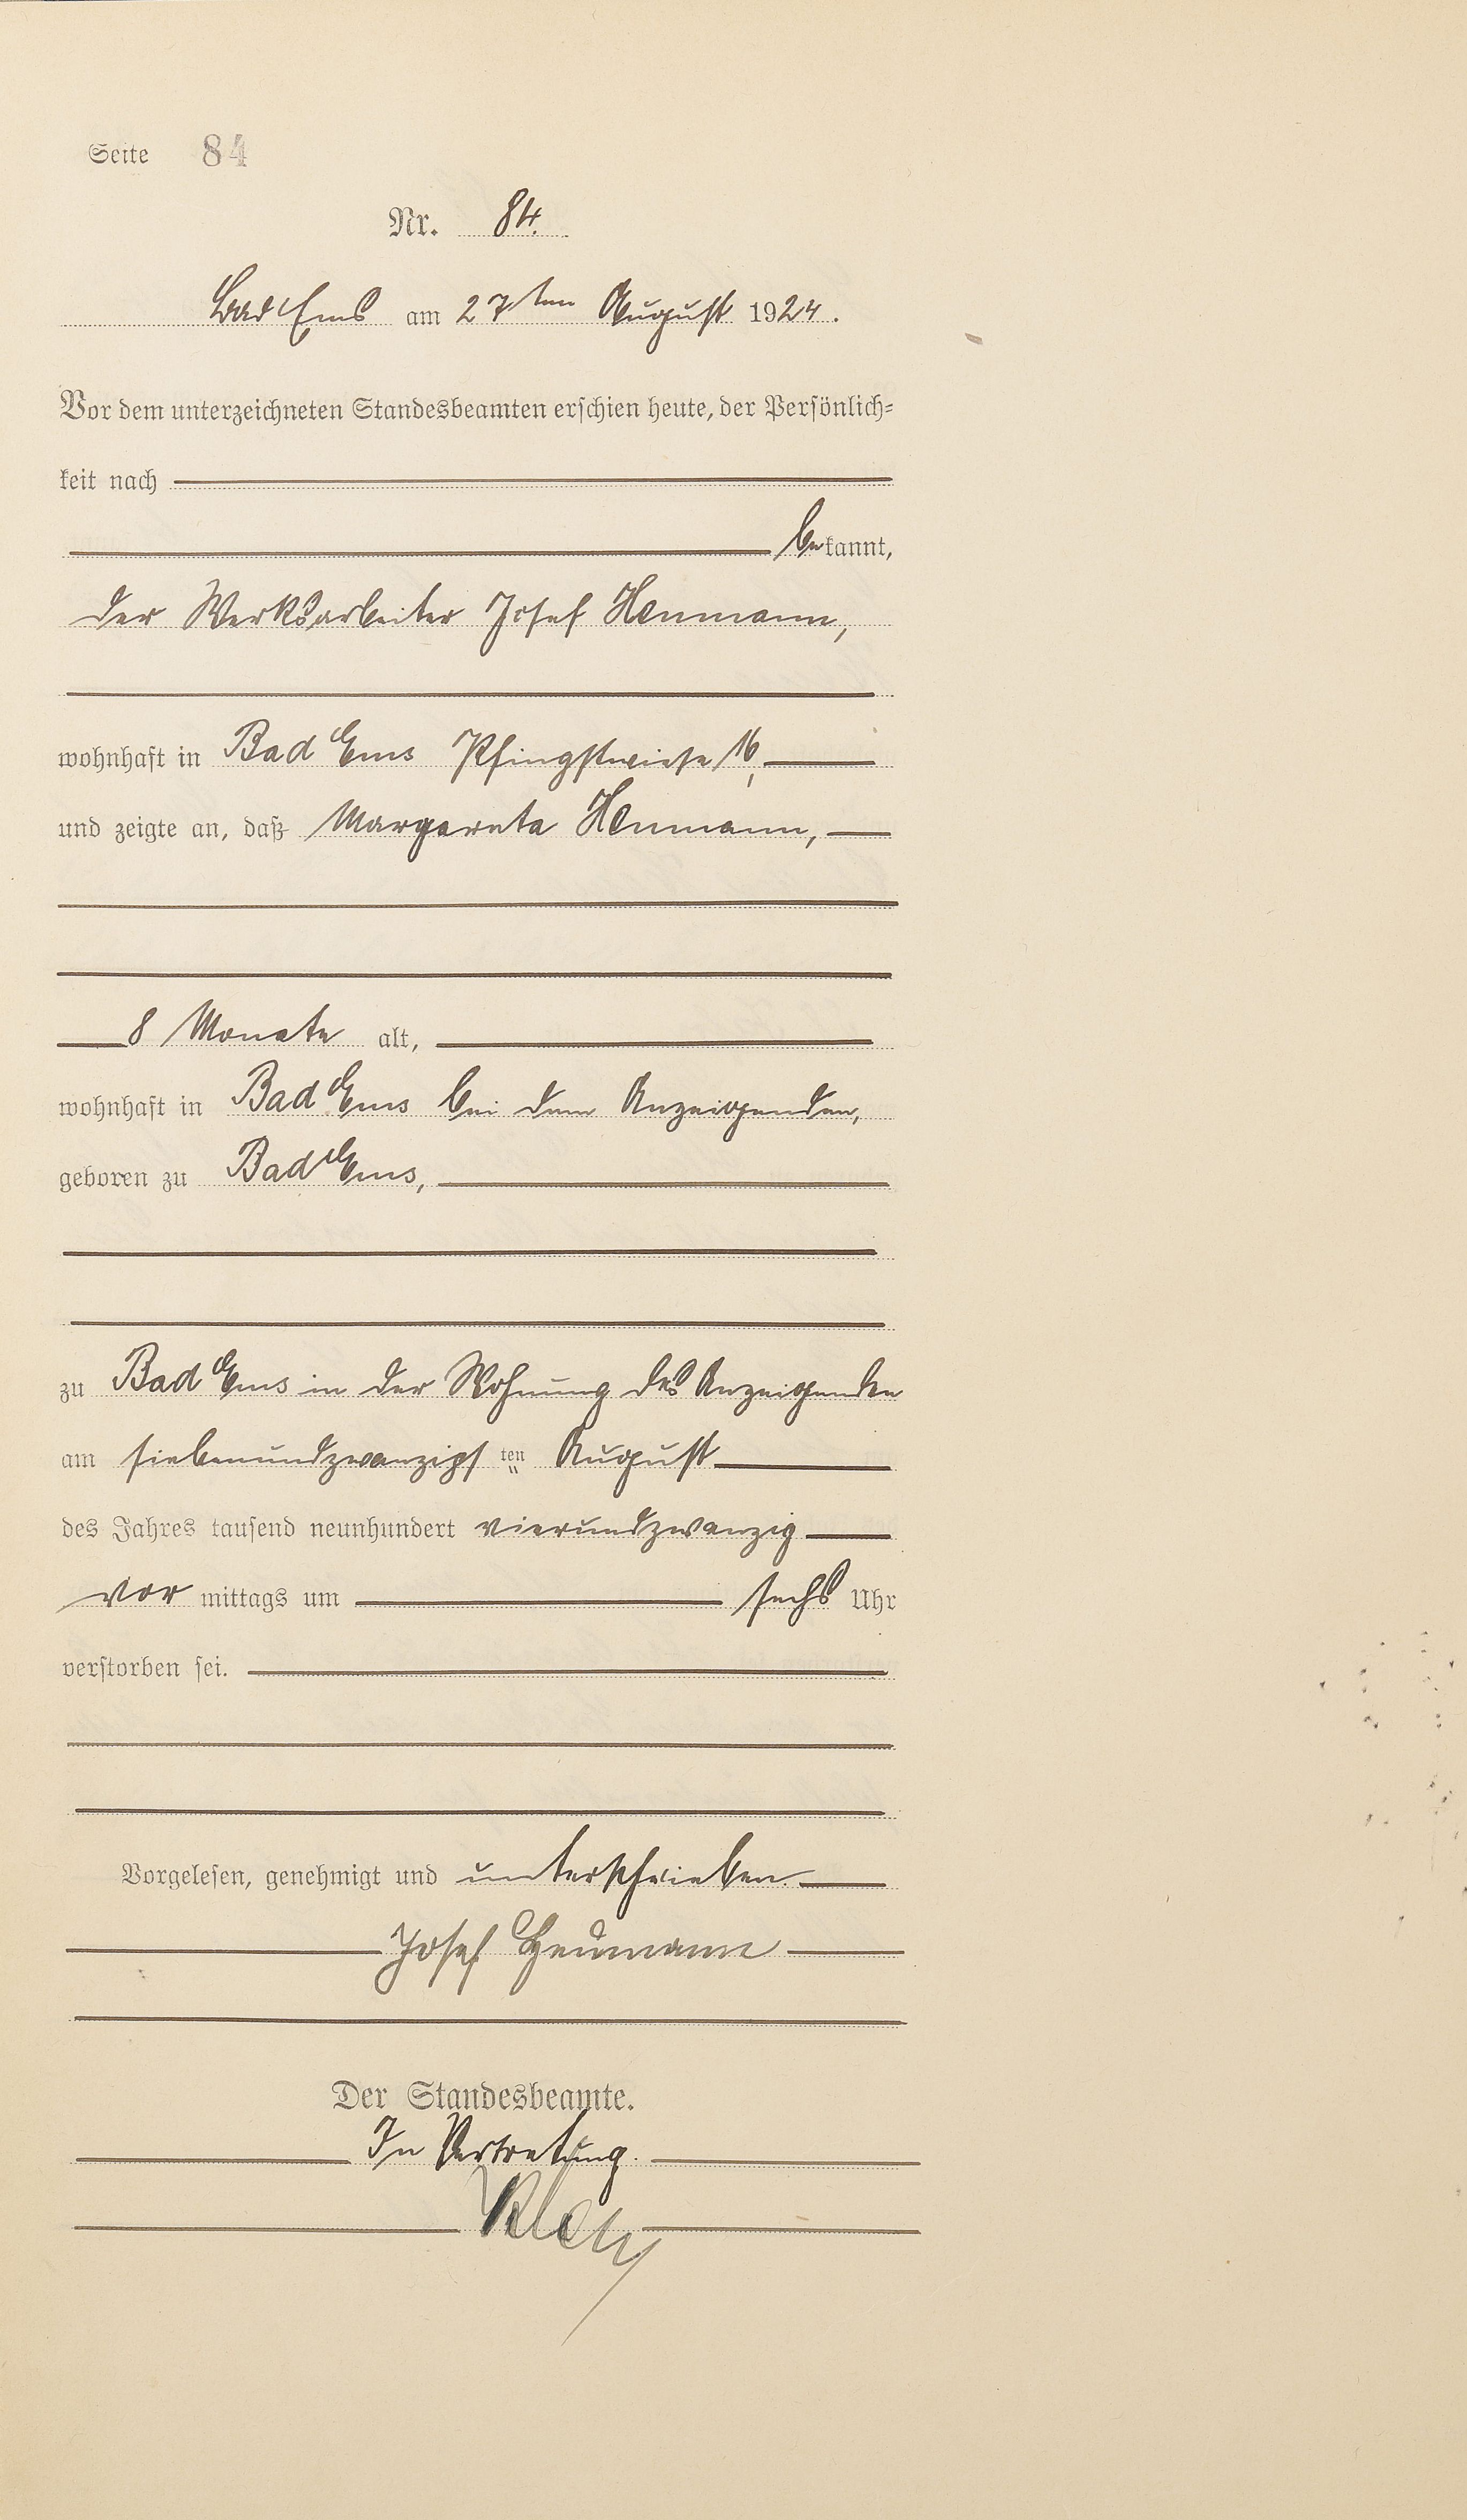 Seite 84
Nr. 84.
Bad Ems am 27ten August 1924.
Vor dem unterzeichneten Standesbeamten erschien heute, der Persönlich-
keit nach
bekannt,
der Werksarbeiter Josef Heumann,
wohnhaft in Bad Ems Pfingstwiese 16,
und zeigte an, daß Margareta Heumann,
8 Monate alt,
wohnhaft in Bad Ems bei dem Anzeigenden,
geboren zu Bad Ems,
zu Bad Ems in der Wohnung des Anzeigenden
am siebenundzwanzigsten August
des Jahres tausend neunhundert vierundzwanzig
vormittags um sechs Uhr
verstorben sei.
Vorgelesen, genehmigt und unterschrieben.
Josef Heumann
Der Standesbeamte.
In Vertretung.